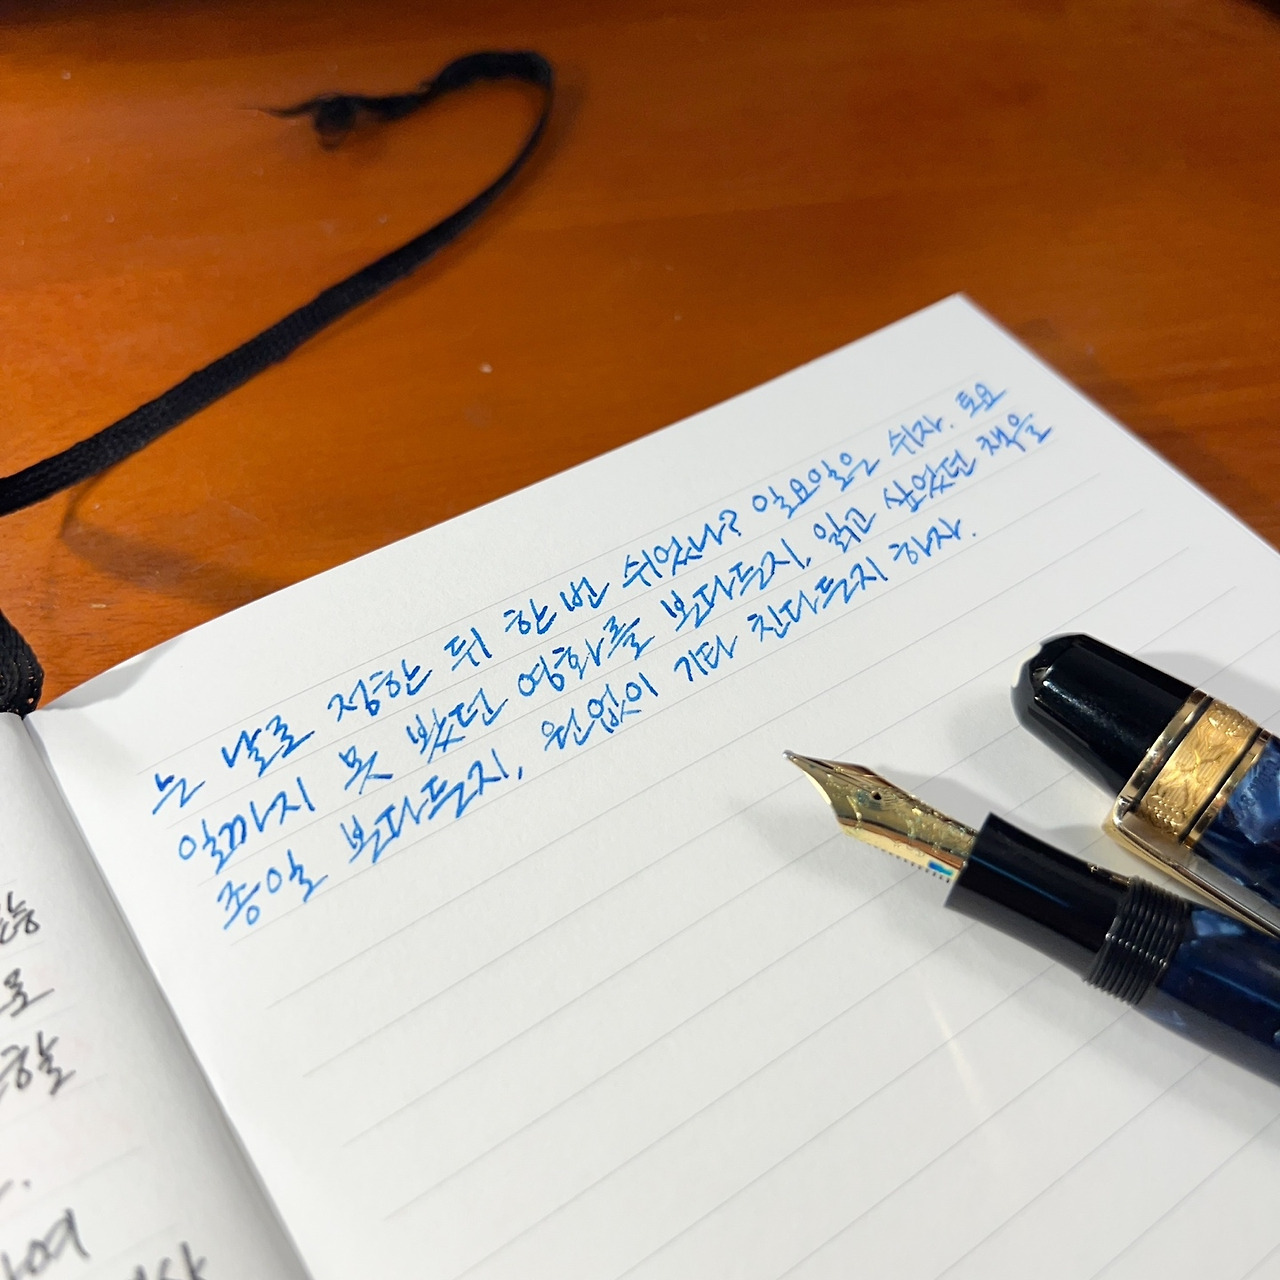 는 날로 정한 뒤 한 번 쉬었나? 일요일은 쉬자. 토요
일까지 못 봤던 영화를 본다든지, 읽고 싶었던 책을
종일 본다든지, 원없이 기타 친다든지 하자.